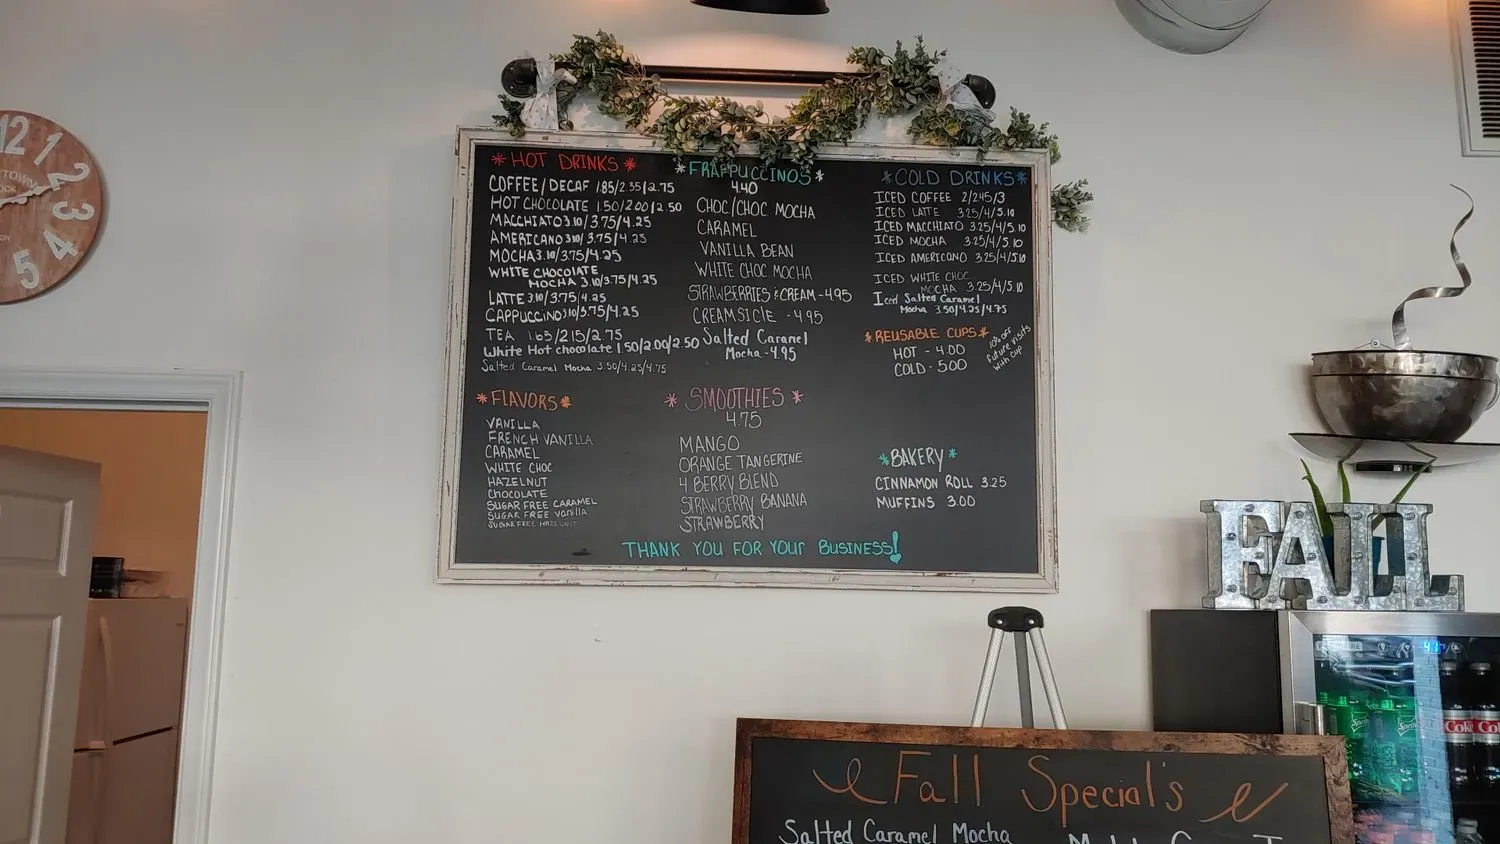 *HOT DRINKS*
COFFEE/DECAF 1.85/2.35/2.75
HOT CHOCOLATE 1.50/2.00/2.50
MACCHIATO 3.10/3.75/4.25
AMERICANO 3.10/3.75/4.25
MOCHA 3.10/3.75/4.25
WHITE CHOCOLATE
MOCHA 3.10/3.75/4.25
LATTE 3.10/3.75/4.25
CAPPUCCINO 3.10/3.75/4.25
TEA 1.65/2.15/2.75
White Hot chocolate 1.50/2.00/2.50
Salted Caramel Mocha 3.50/4.25/4.75
*FLAVORS*
VANILLA
FRENCH VANILLA
CARAMEL
WHITE CHOC
HAZELNUT
CHOCOLATE
SUGAR FREE CARAMEL
SUGAR FREE Vanilla
SUGAR FREE HAZELNUT
*FRAPPUCCINOS*
4.40
CHOC/CHOC MOCHA
CARAMEL
VANILLA BEAN
WHITE CHOC MOCHA
STRAWBERRIES & CREAM - 4.95
CREAMSICLE - 4.95
Salted Caramel
Mocha - 4.95
*SMOOTHIES*
4.75
MANGO
ORANGE TANGERINE
4 BERRY BLEND
STRAWBERRY BANANA
STRAWBERRY
*COLD DRINKS*
ICED COFFEE 2/2.45/3
ICED LATTE 3.25/4/5.10
ICED MACCHIATO 3.25/4/5.10
ICED MOCHA 3.25/4/5.10
ICED AMERICANO 3.25/4/5.10
ICED WHITE CHOC
MOCHA 3.25/4/5.10
Iced Salted Caramel
Mocha 3.50/4.25/4.75
*REUSABLE CUPS*
HOT - 4.00
COLD - 5.00
10% OFF
Future visits
with cup
*BAKERY*
CINNAMON ROLL 3.25
MUFFINS 3.00
THANK YOU FOR YOUR BUSINESS!
12
1
2
3
4
5
FALL
Sprite
Coke
Fall Special's
Salted Caramel Mocha